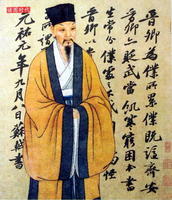 读图时代
晉卿為僕所累僕既謫齊安
晉卿亦貶武當飢寒窮困本書
生常
元祐元年九月八日蘇軾書